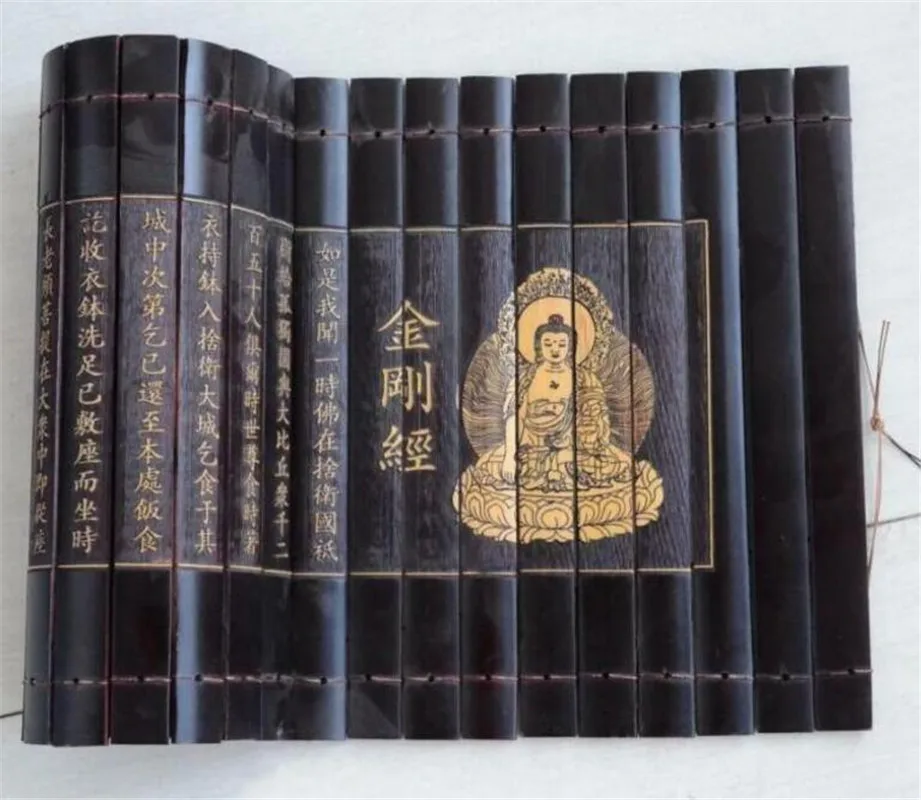 金剛經
如是我聞一時佛在捨衛國祇
樹給孤獨園與大比丘衆千二
百五十人俱爾時世尊食時著
衣持鉢入捨衛大城乞食于其
城中次第乞已還至本處飯食
訖收衣鉢洗足已敷座而坐時
長老須菩提在大衆中即從座